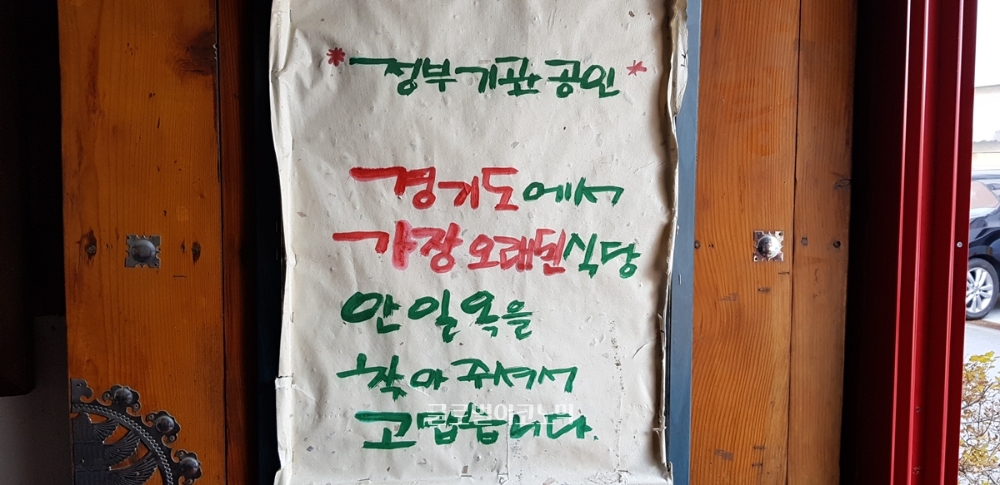 *정부기관공인*
경기도에서
가장 오래된식당
안일옥을
찾아 주셔서
고맙습니다.